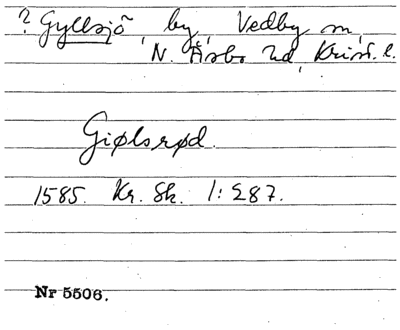 ? Gyllsjö, by, Vedby sn,
N. Åsbo hd, Krist. l.
Giølsrød.
1585. Kr. Sk. 1: 287.
Nr 5506.